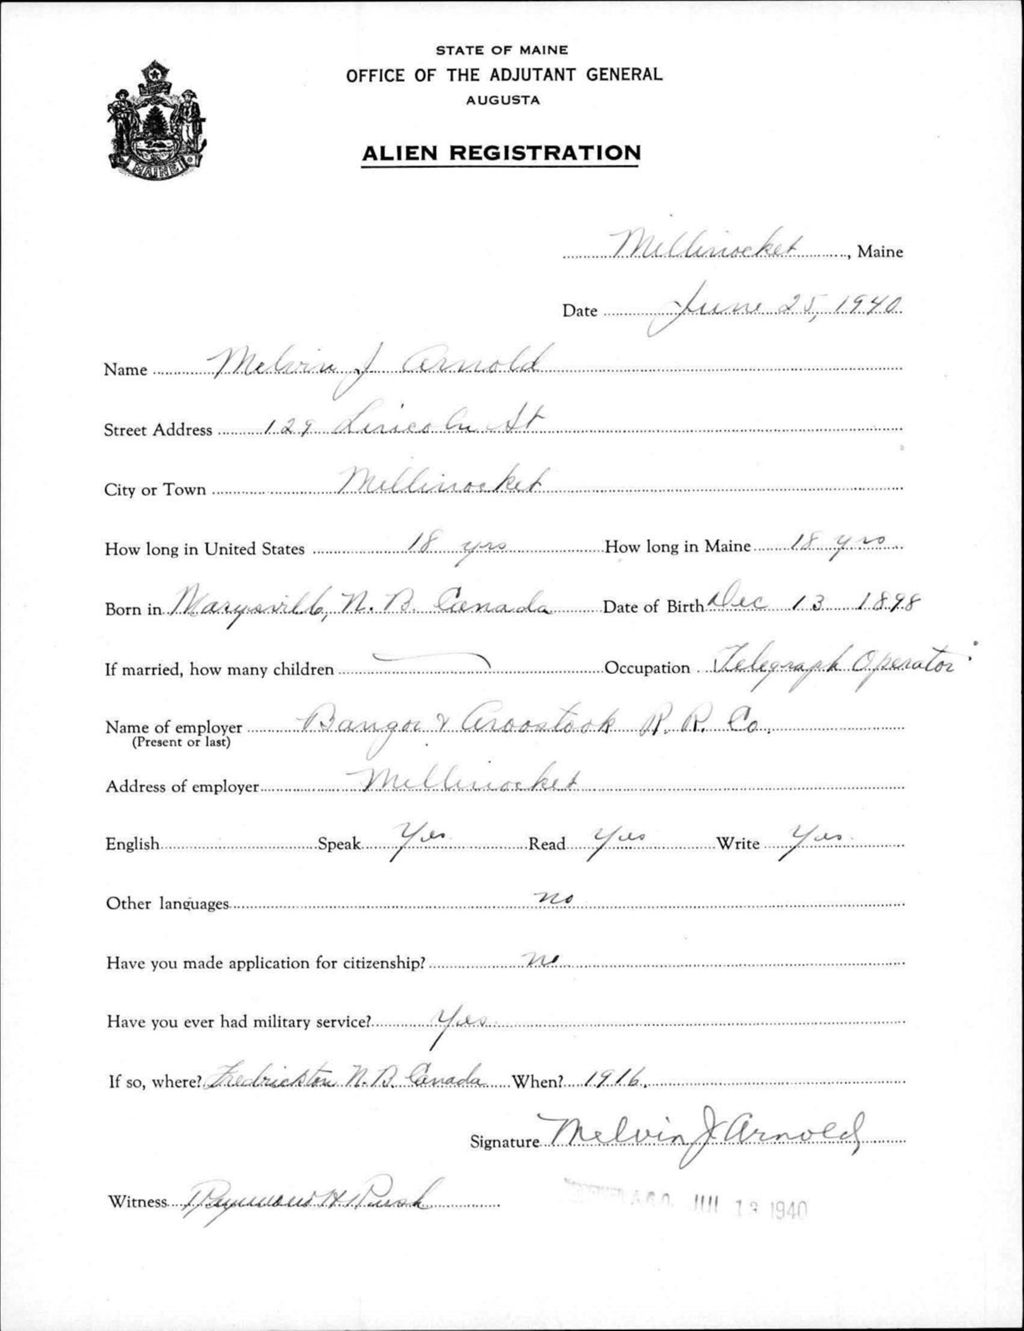 STATE OF MAINE
OFFICE OF THE ADJUTANT GENERAL
AUGUSTA
MAINE
ALIEN REGISTRATION
Millinocket, Maine
Date June 25, 1940
Name Melvin J Arnold
Street Address 129 Lincoln St
City or Town Millinocket
How long in United States 18 yrs How long in Maine 18 yrs
Born in Marysville, N. B. Canada Date of Birth Dec 13 1898
If married, how many children Occupation Telegraph Operator
Name of employer Bangor & Aroostook R. R. Co.
(Present or last)
Address of employer Millinocket
English Speak Yes Read Yes Write Yes
Other languages no
Have you made application for citizenship? no
Have you ever had military service? Yes
If so, where? Fredrickton N. B. Canada When? 1916.
Signature Melvin J Arnold
Witness Raymond H. Rush
A.G.O. 1940